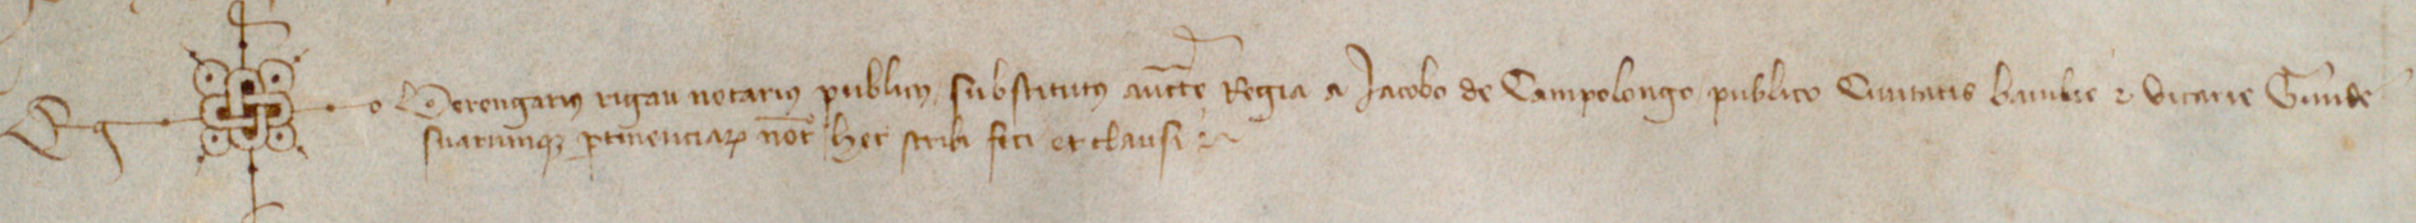 Eg o Berengarius rigau notarius publicus substitutus auctte Regia a Jacobo de Campolongo publico Civitatis vicarie Gerunde
suarumque pertinenciarum not hec scribi feci et clausi